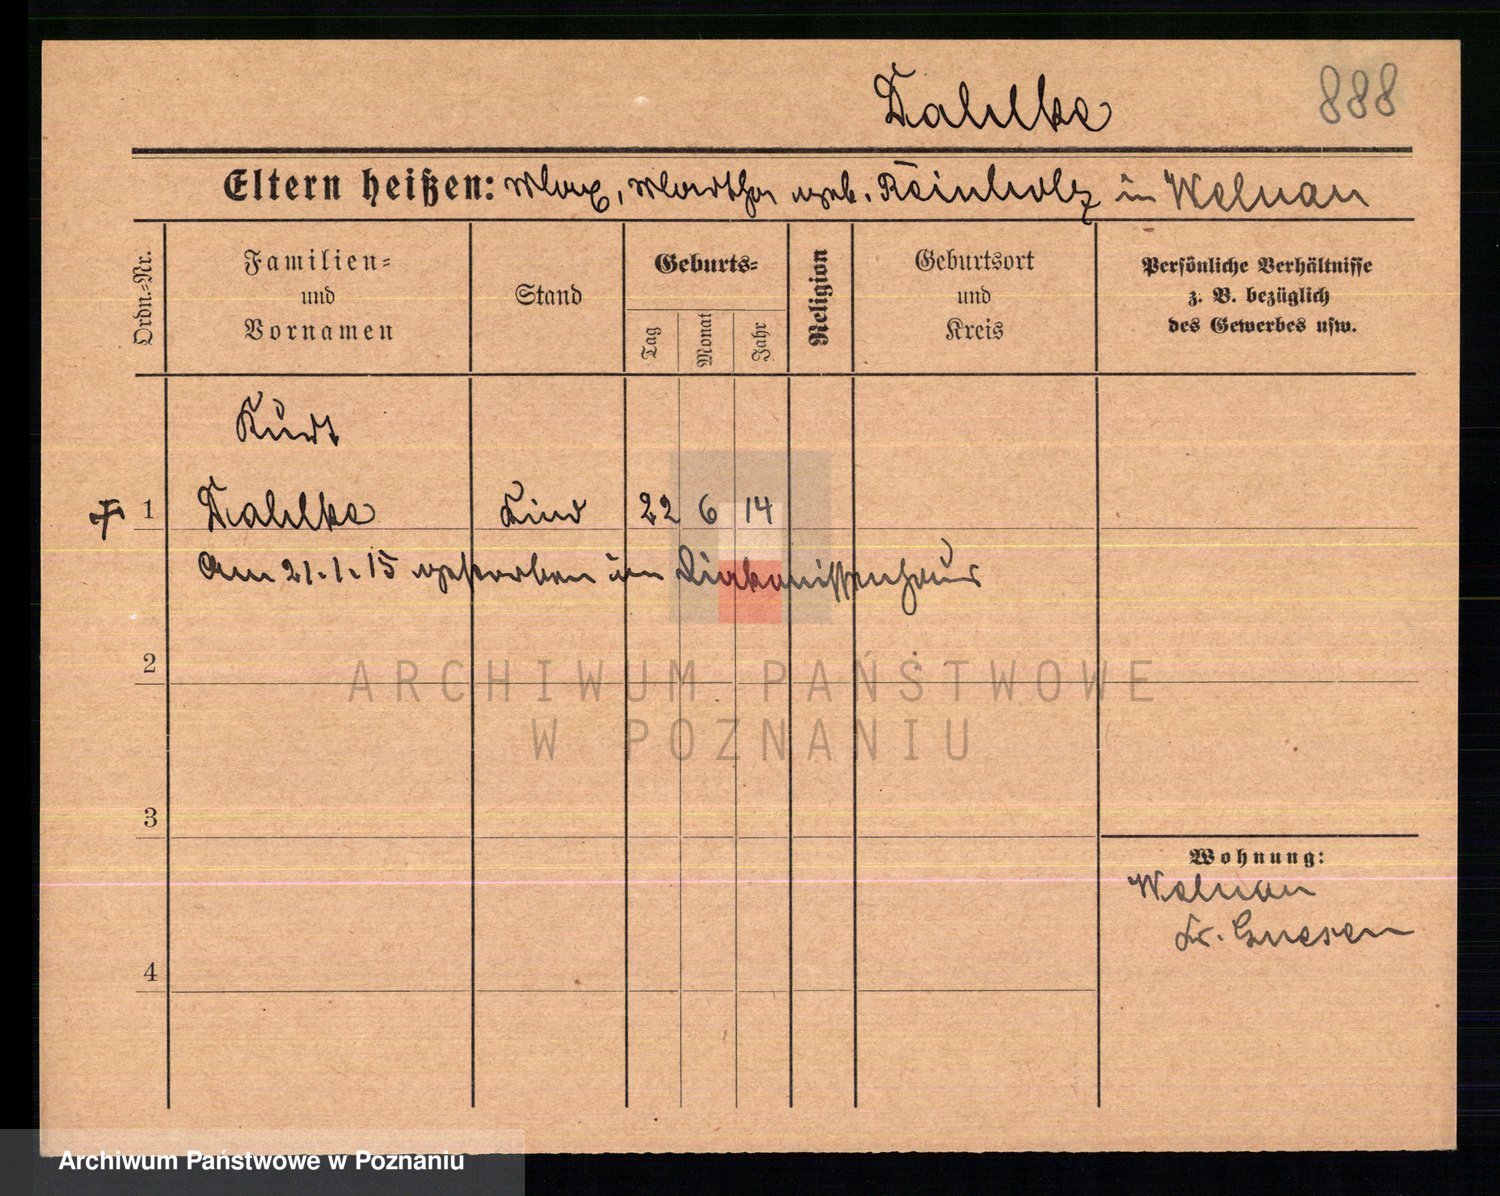 Dahlke
888
Eltern heißen: Max, Martha geb. Reinholz in Welnau
Ordn.-Nr.
Familien-
und
Vornamen
Stand
Geburts-
Tag
Monat
Jahr
Religion
Geburtsort
und
Kreis
Persönliche Verhältnisse
z. B. bezüglich
des Gewerbes usw.
Kurt
1 Dahlke Kind 22 6 14
Am 21.1.15 gestorben im Diakonissenhaus
2
3
4
Wohnung:
Welnau
Kr. Gnesen
ARCHIWUM PAŃSTWOWE
W POZNANIU
Archiwum Państwowe w Poznaniu